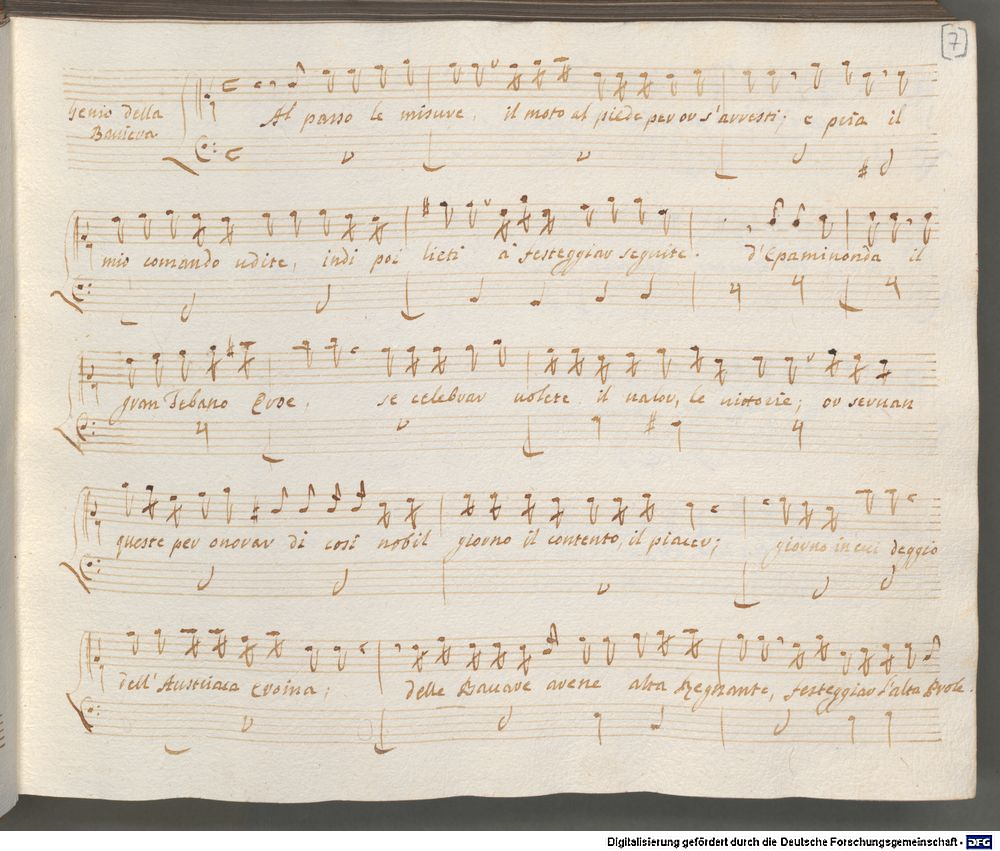 [7]
Genio della
Baviera
Al passo le misure, il moto al piede per or s'arresti; e pria il
mio comando udite, indi poi lieti à festeggiar seguite. d'Epaminonda il
gran Tebano Eroe, se celebrar volete il valor, le vittorie; or servan
queste per onorar di così nobil giorno il contento, il piacer; giorno in cui deggio
dell'Austriaca Eroina, delle Bavare arene alta Regnante, festeggiar l'alta Prole.
Digitalisierung gefördert durch die Deutsche Forschungsgemeinschaft - DFG